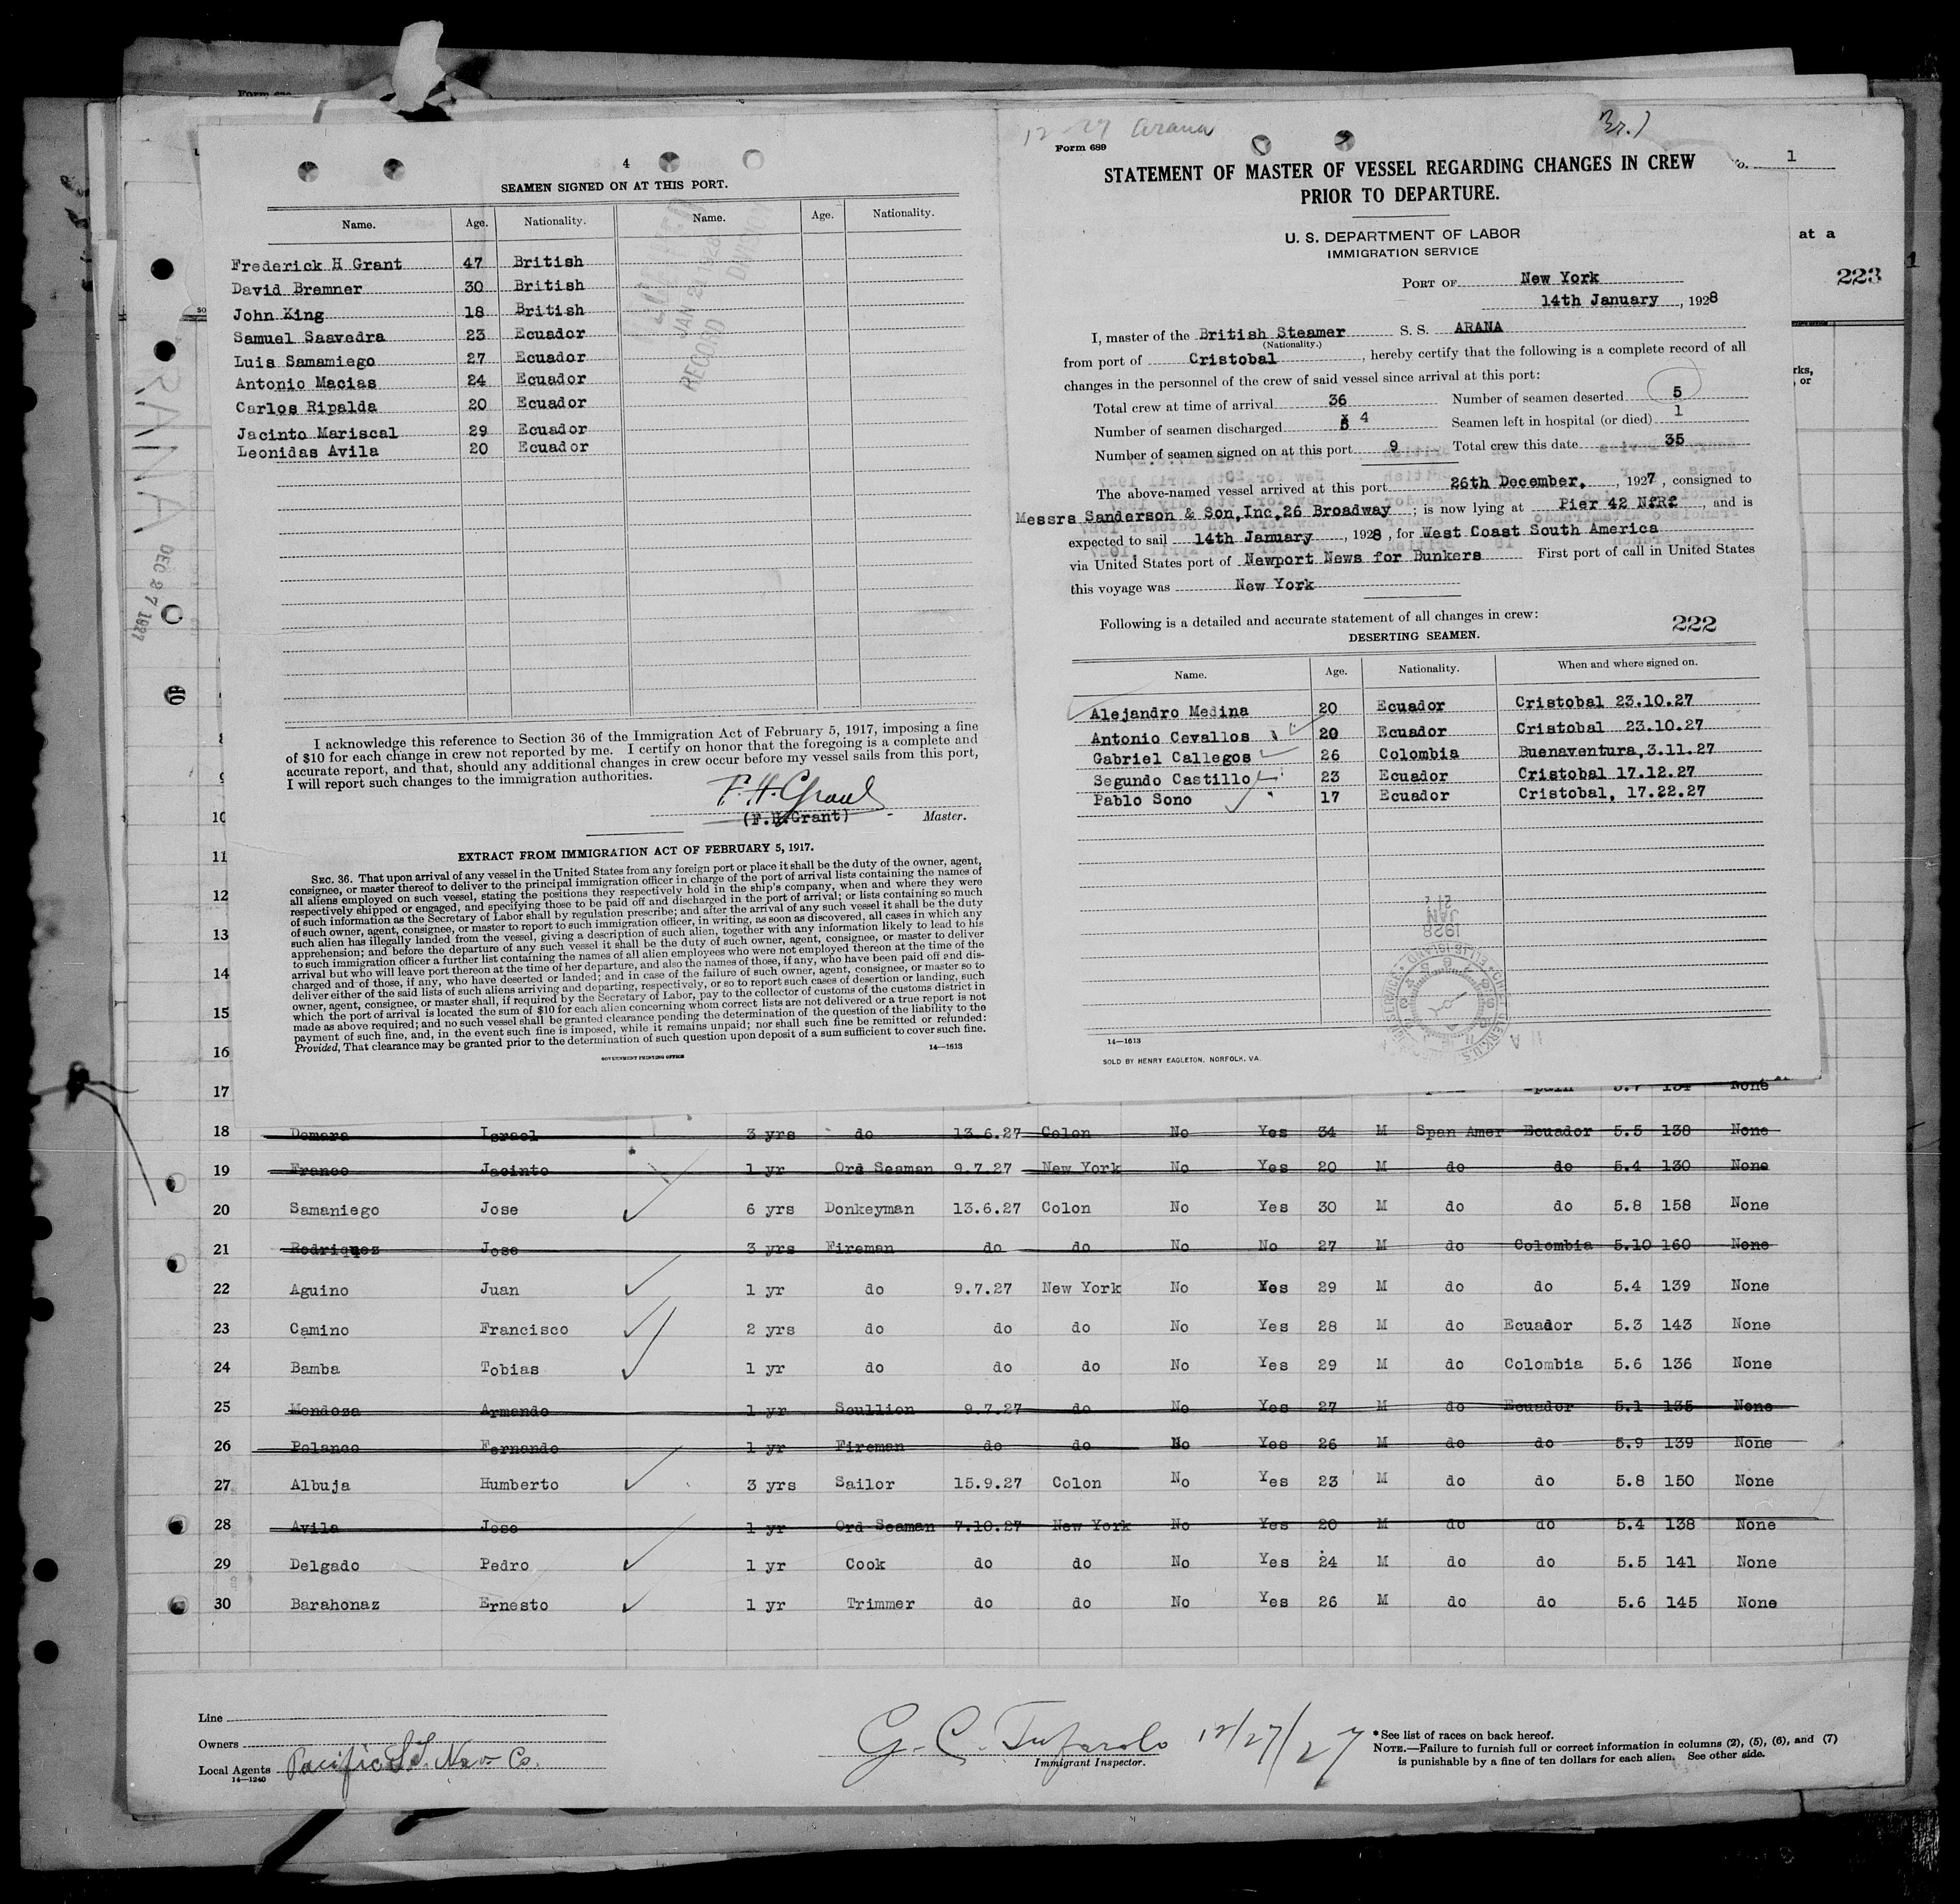 4
SEAMEN SIGNED ON AT THIS PORT.
Name. Age. Nationality. Name. Age. Nationality.
Frederick H Grant 47 British
David Bremner 30 British
John King 18 British
Samuel Saavedra 23 Ecuador
Luis Samamiego 27 Ecuador
Antonio Macias 24 Ecuador
Carlos Ripalda 20 Ecuador
Jacinto Mariscal 29 Ecuador
Leonidas Avila 20 Ecuador
JAN 1928
RECORD DIVISION
I acknowledge this reference to Section 36 of the Immigration Act of February 5, 1917, imposing a fine
of $10 for each change in crew not reported by me. I certify on honor that the foregoing is a complete and
accurate report, and that, should any additional changes in crew occur before my vessel sails from this port,
I will report such changes to the immigration authorities.
F. H. Grant
(F.H.Grant) Master.
EXTRACT FROM IMMIGRATION ACT OF FEBRUARY 5, 1917.
SEC. 36. That upon arrival of any vessel in the United States from any foreign port or place it shall be the duty of the owner, agent,
consignee, or master thereof to deliver to the principal immigration officer in charge of the port of arrival lists containing the names of
all aliens employed on such vessel, stating the positions they respectively hold in the ship's company, when and where they were
respectively shipped or engaged, and specifying those to be paid off and discharged in the port of arrival; or lists containing so much
of such information as the Secretary of Labor shall by regulation prescribe; and after the arrival of any such vessel it shall be the duty
of such owner, agent, consignee, or master to report to such immigration officer, in writing, as soon as discovered, all cases in which any
such alien has illegally landed from the vessel, giving a description of such alien, together with any information likely to lead to his
apprehension; and before the departure of any such vessel it shall be the duty of such owner, agent, consignee, or master to deliver
to such immigration officer a further list containing the names of all alien employees who were not employed thereon at the time of the
arrival but who will leave port thereon at the time of her departure, and also the names of those, if any, who have been paid off and dis-
charged and of those, if any, who have deserted or landed; and in case of the failure of such owner, agent, consignee, or master so to
deliver either of the said lists of such aliens arriving and departing, respectively, or so to report such cases of desertion or landing, such
owner, agent, consignee, or master shall, if required by the Secretary of Labor, pay to the collector of customs of the customs district in
which the port of arrival is located the sum of $10 for each alien concerning whom correct lists are not delivered or a true report is not
made as above required; and no such vessel shall be granted clearance pending the determination of the question of the liability to the
payment of such fine, and, in the event such fine is imposed, while it remains unpaid; nor shall such fine be remitted or refunded:
Provided, That clearance may be granted prior to the determination of such question upon deposit of a sum sufficient to cover such fine.
GOVERNMENT PRINTING OFFICE 14—1613
12-27 Arana
Form 689
Br.)
STATEMENT OF MASTER OF VESSEL REGARDING CHANGES IN CREW
PRIOR TO DEPARTURE.
U. S. DEPARTMENT OF LABOR
IMMIGRATION SERVICE
PORT OF New York
14th January, 1928
I, master of the British Steamer S. S. ARANA
(Nationality.)
from port of Cristobal, hereby certify that the following is a complete record of all
changes in the personnel of the crew of said vessel since arrival at this port:
Total crew at time of arrival 36 Number of seamen deserted 5
Number of seamen discharged 4 Seamen left in hospital (or died) 1
Number of seamen signed on at this port 9 Total crew this date 35
The above-named vessel arrived at this port 26th December, 1927, consigned to
Messrs Sanderson & Son,Inc,26 Broadway; is now lying at Pier 42 N.R., and is
expected to sail 14th January, 1928, for West Coast South America
via United States port of Newport News for Bunkers First port of call in United States
this voyage was New York
Following is a detailed and accurate statement of all changes in crew:
222
DESERTING SEAMEN.
Name. Age. Nationality. When and where signed on.
Alejandro Medina 20 Ecuador Cristobal 23.10.27
Antonio Cevallos 20 Ecuador Cristobal 23.10.27
Gabriel Callegos 26 Colombia Buenaventura,3.11.27
Segundo Castillo 23 Ecuador Cristobal 17.12.27
Pablo Sono 17 Ecuador Cristobal, 17.22.27
JAN
1928
14—1613
SOLD BY HENRY EAGLETON, NORFOLK, VA.
No. 1
at a
223
1
rks,
, or
ARANA
DEC 27 1927
10
11
12
13
14
15
16
17 None
18 Demara Israel 3 yrs do 13.6.27 Colon No Yes 34 M Span Amer Ecuador 5.5 138 None
19 Franco Jacinto 1 yr Ord Seaman 9.7.27 New York No Yes 20 M do do 5.4 130 None
20 Samaniego Jose 6 yrs Donkeyman 13.6.27 Colon No Yes 30 M do do 5.8 158 None
21 Rodriquez Jose 3 yrs Fireman do do No No 27 M do Colombia 5.10 160 None
22 Aguino Juan 1 yr do 9.7.27 New York No Yes 29 M do do 5.4 139 None
23 Camino Francisco 2 yrs do do do No Yes 28 M do Ecuador 5.3 143 None
24 Bamba Tobias 1 yr do do do No Yes 29 M do Colombia 5.6 136 None
25 Mendoza Armando 1 yr Scullion 9.7.27 do No Yes 27 M do Ecuador 5.1 135 None
26 Polanco Fernando 1 yr Fireman do do No Yes 26 M do do 5.9 139 None
27 Albuja Humberto 3 yrs Sailor 15.9.27 Colon No Yes 23 M do do 5.8 150 None
28 Avila Jose 1 yr Ord Seaman 7.10.27 New York No Yes 20 M do do 5.4 138 None
29 Delgado Pedro 1 yr Cook do do No Yes 24 M do do 5.5 141 None
30 Barahonaz Ernesto 1 yr Trimmer do do No Yes 26 M do do 5.6 145 None
Line
Owners
Local Agents Pacific St. Nav Co.
14—1240
G. C. 12/27/27
Immigrant Inspector.
*See list of races on back hereof.
NOTE.—Failure to furnish full or correct information in columns (2), (5), (6), and (7)
is punishable by a fine of ten dollars for each alien. See other side.